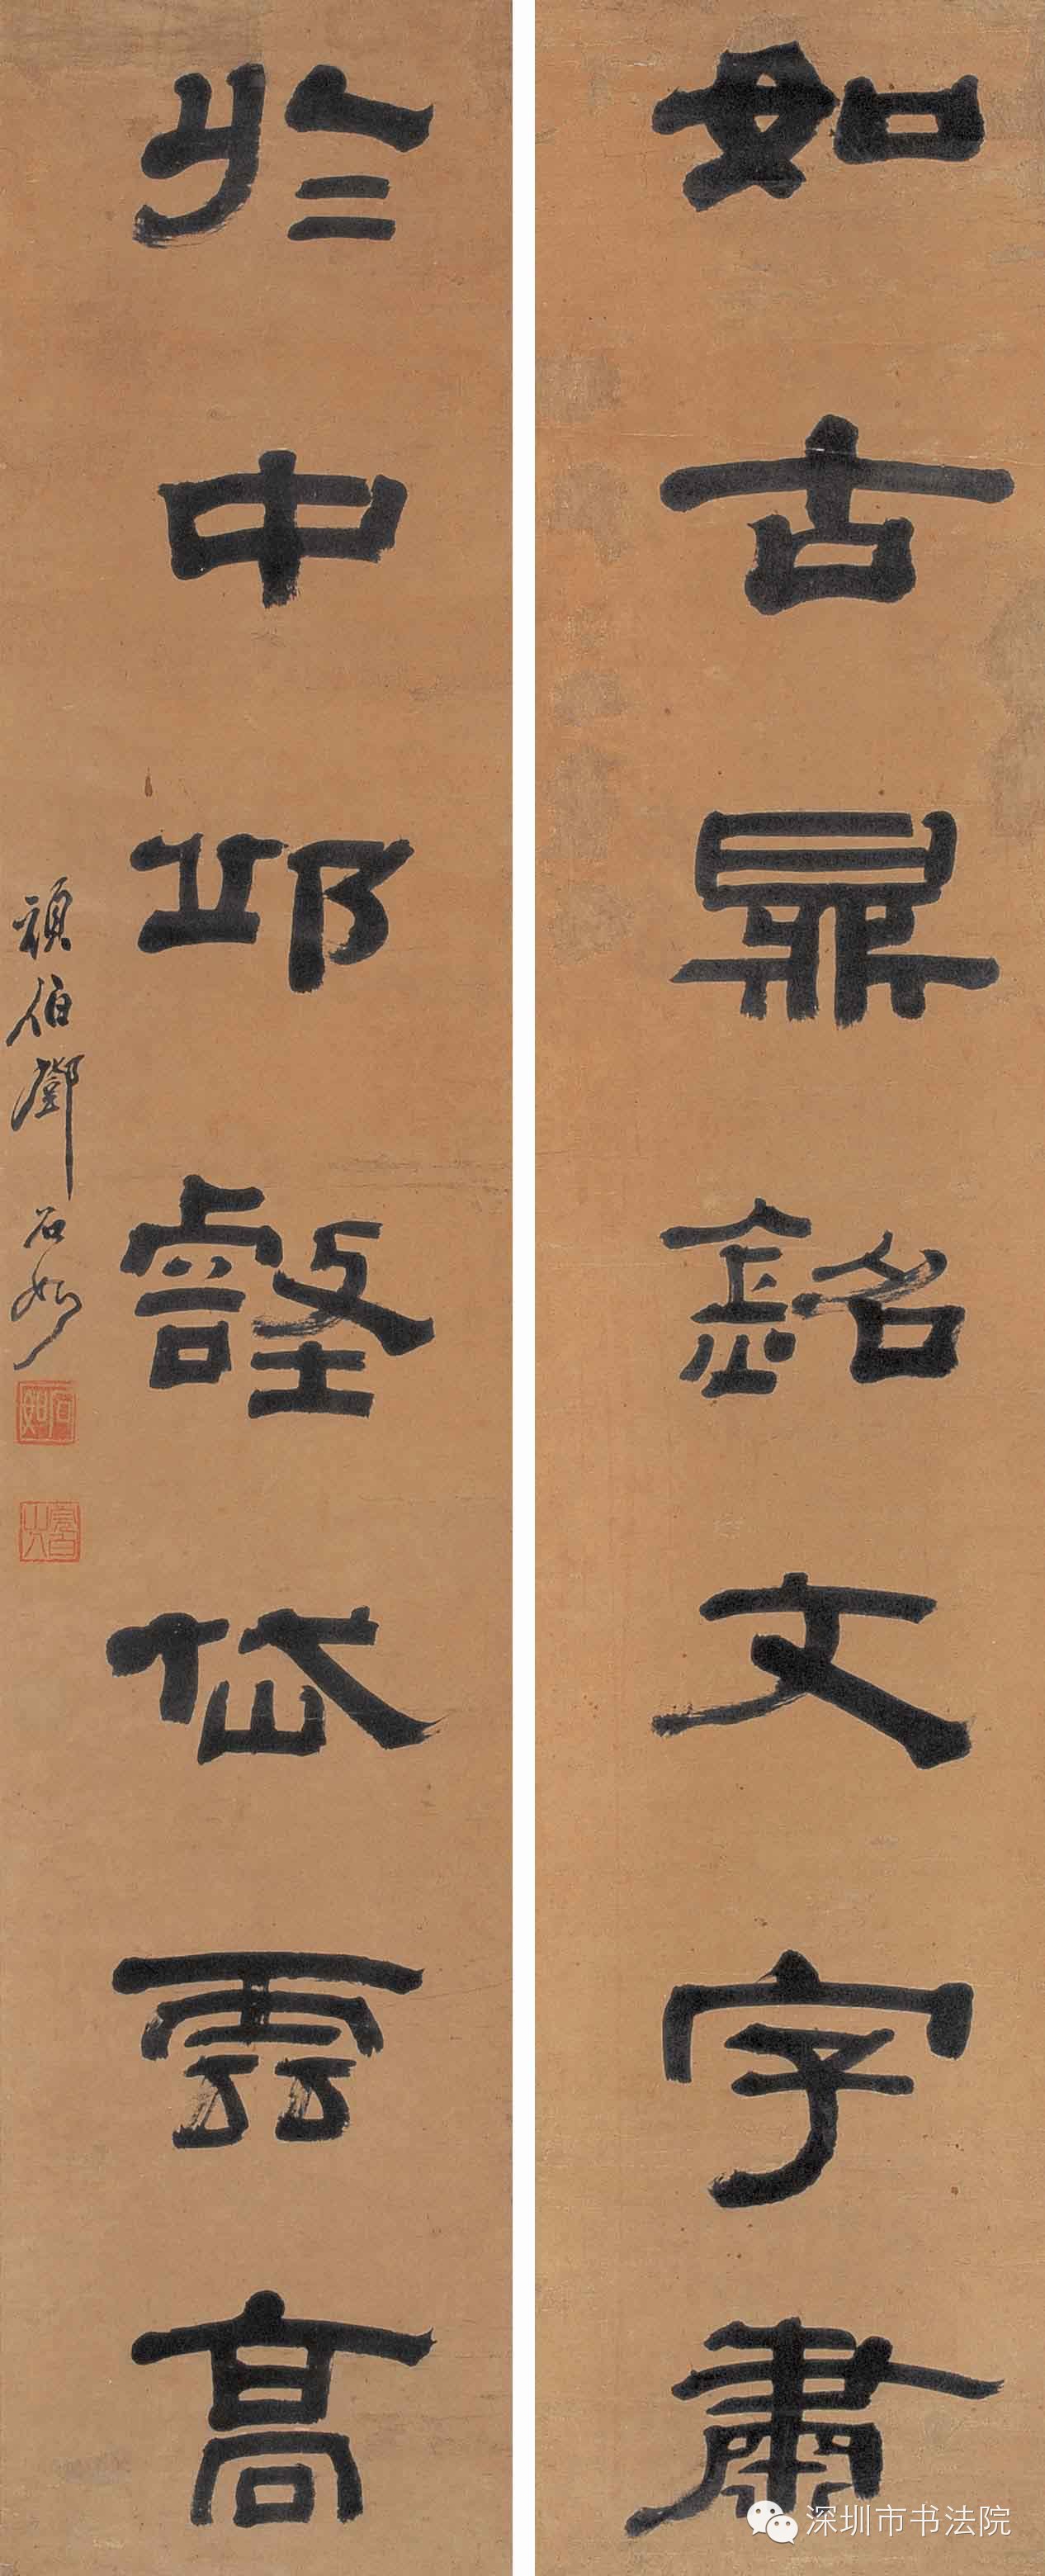 如古鼎銘文字肅
於中邱壑岱雲高
頑伯鄧石如
深圳市书法院